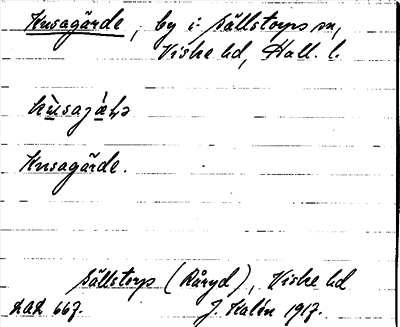 Husagärde, by i Sällstorps sn,
Viske hd, Hall. l.
Husagärde.
Sällstorp (Råryd), Viske hd
667. J. Halén 1917.